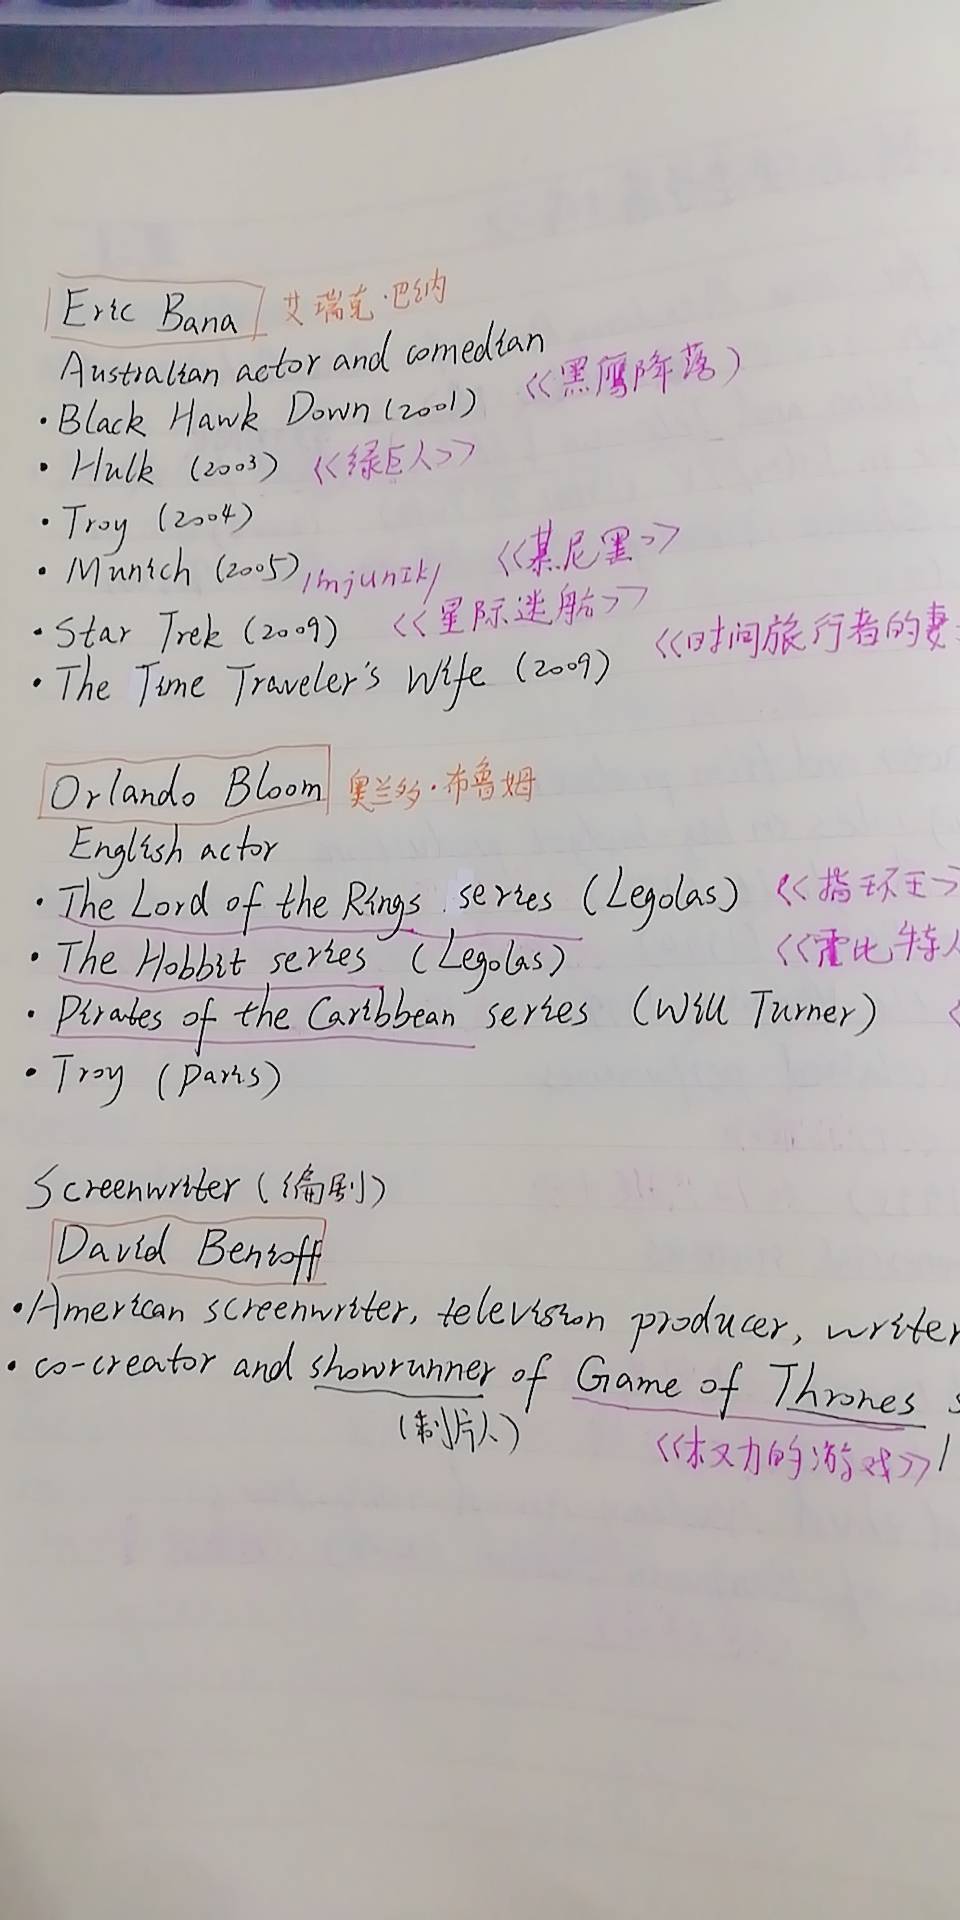 Eric Bana 艾瑞克·巴纳
Australian actor and comedian
·Black Hawk Down (2001) <<黑鹰降落>
·Hulk (2003) <<绿巨人>>
·Troy (2004)
·Munich (2005) /mjunɪk/ <<慕尼黑>>
·Star Trek (2009) <<星际迷航>>
·The Time Traveler's Wife (2009) <<时间旅行者的妻
Orlando Bloom 奥兰多·布鲁姆
English actor
·The Lord of the Rings series (Legolas) <<指环王>
·The Hobbit series (Legolas) <<霍比特人
·Pirates of the Caribbean series (Will Turner) <
·Troy (Paris)
Screenwriter (编剧)
David Benioff
·American screenwriter, television producer, writer
·co-creator and showrunner of Game of Thrones s
(制片人) <<权力的游戏>>